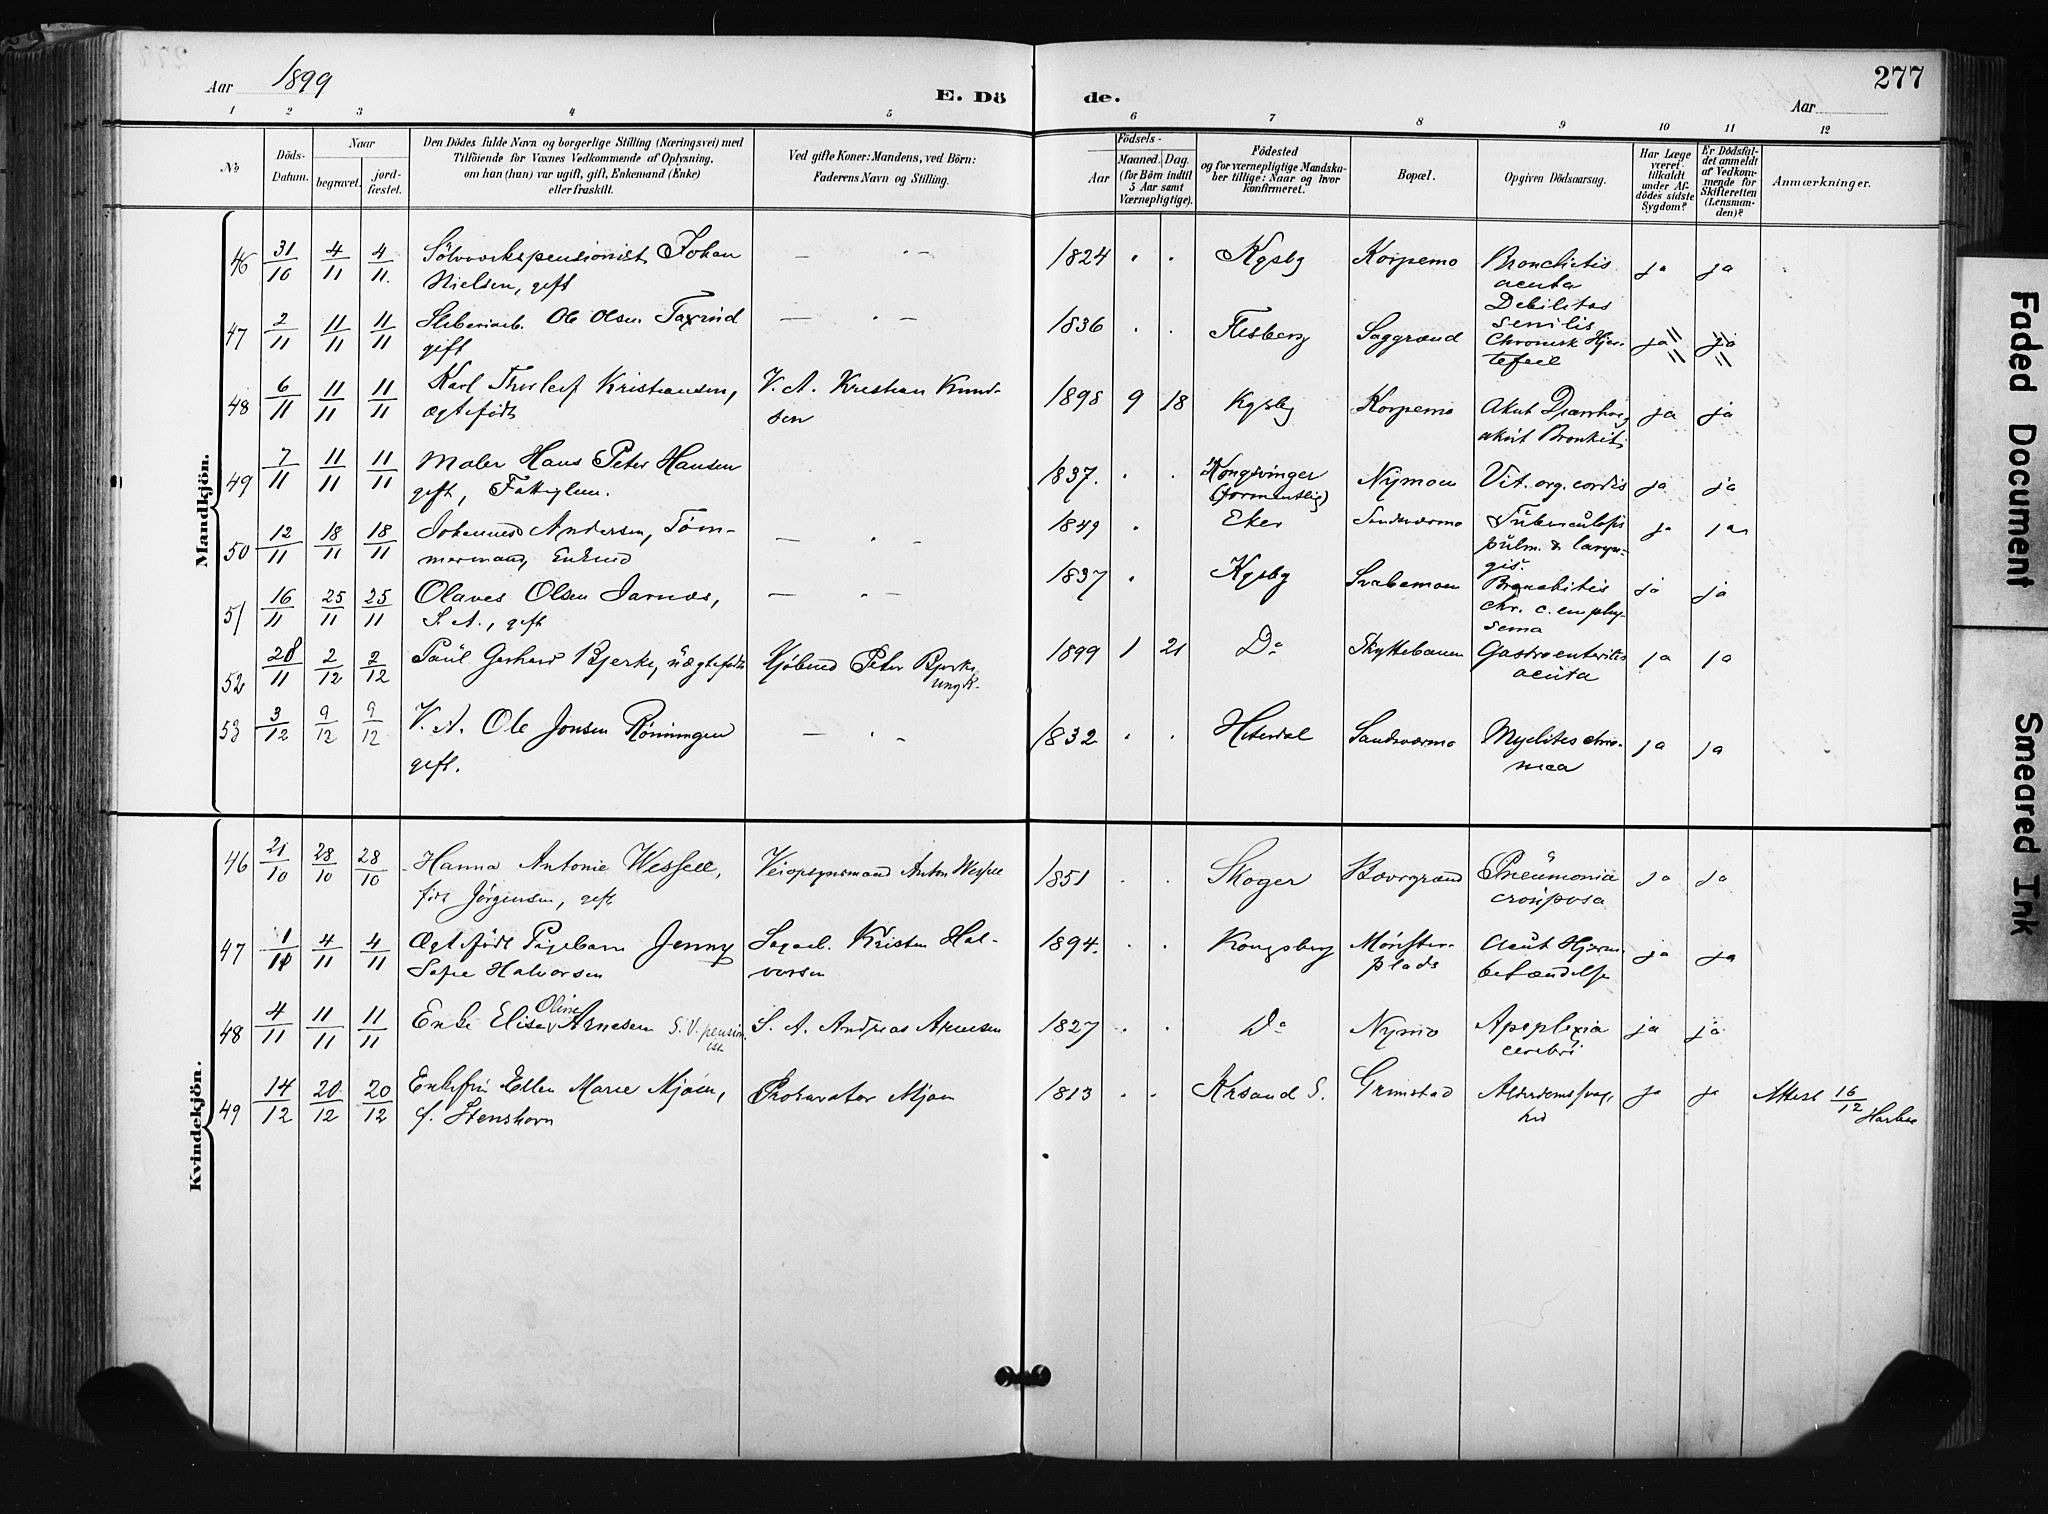 277
Aar 1899
E. Dö de.
Aar
1 2 3 4 5 6 7 8 9 10 11 12
No
Döds-Datum.
Naar
begravet.
jord-fæstet.
Den Dödes fulde Navn og borgerlige Stilling (Næringsvei) med
Tilföiende for Voxnes Vedkommende af Oplysning,
om han (hun) var ugift, gift, Enkemand (Enke)
eller fraskilt.
Ved gifte Koner: Mandens, ved Börn:
Faderens Navn og Stilling.
Födsels-
Aar
Maaned. Dag.
(for Börn indtil
5 Aar samt
Værnepligtige).
Födested
og for værnepligtige Mandska-
ber tillige: Naar og hvor
konfirmeret.
Bopæl.
Opgiven Dödsaarsag.
Har Læge
været
tilkaldt
under Af-
dödes sidste
Sygdom?
Er Dödsfal-
det anmeldt
af Vedkom-
mende for
Skifteretten
(Lensman-
den)?
Anmærkninger.
Mandkjön.
46 31/10 4/11 4/11. Sölvverkspensionist Johan — " — 1824 . . Kgsbg Korpemo Bronchitis ja ja
Nielsen, gift acuta
Debilitas
47 2/11 11/11 11/11 Sliberiarb. Ole Olsen Taxrud — " — 1836 . . Flesberg Saggrend senilis
gift Chronisk Hjer- ja ja
tefeil
48 6/11 11/11 11/11 Karl Thorleif Kristiansen, V. A. Kristian Knud- 1898 9 18 Kgsbg Korpemo Akut Diarrhoe, ja ja
ægtefødt sen akut Bronkit.
49 7/11 11/11 11/11 Maler Hans Peter Hansen 1837. . . Kongsvinger Nymoen Vit. org. cordis ja ja
gift, Fattiglem. (formentlig)
50 12/11 18/11 18/11 Johannes Andersen, Tøm- — " — 1849 . Eker Sandsværmo Tuberculosis ja ja
mermand, Enkemd pulm. & laryn-
gis.
51 16/11 25/11 25/11 Olaves Olsen Jarnæs, — " — 1837 . Kgsbg Svabemoen Bronchitis ja ja
S. A., gift chr. c. emphy-
sema
52 28/11 2/12 2/12 Paul Gerhard Bjerke, uægtefødt Kjøbmd Peter Bjerke, 1899 1 21 Do Skyttebanen Gastroenteritis ja ja
ungk. acuta
53 3/12 9/12 9/12 V. A. Ole Jonsen Rönningen — " — 1832 . . Hiterdal Sandsværmo Myelitis chro- ja ja
gift. nica
Kvindekjön.
46 21/10 28/10 28/10 Hanna Antonie Wessell, Veiopsynsmand Anton Wessell 1851 . . Skoger Bævergrend Pneumonia ja ja
født Jørgensen, gift crouposa
47 1/11 4/11 4/11 Ægtefødt Pigebarn Jenny Sagarb. Kristen Hal- 1894. . . Kongsberg Mønster- Acut Hjerne ja ja
Sofie Halvorsen vorsen plads betændelse
48 4/11 11/11 11/11 Enke Elise Oline Arnesen S. V. pension- S. A. Andreas Arnesen 1827 . . Do Nymo Apoplexia ja ja
ist cerebri
49 14/12 20/12 20/12 Enkefru Ellen Marie Mjöen, Prokurator Mjøen 1813 . . Krsand S. Grimstad Alderdomssvag- ja ja Attest 16/12
f. Stenshorn hed
Faded Document
Smeared Ink